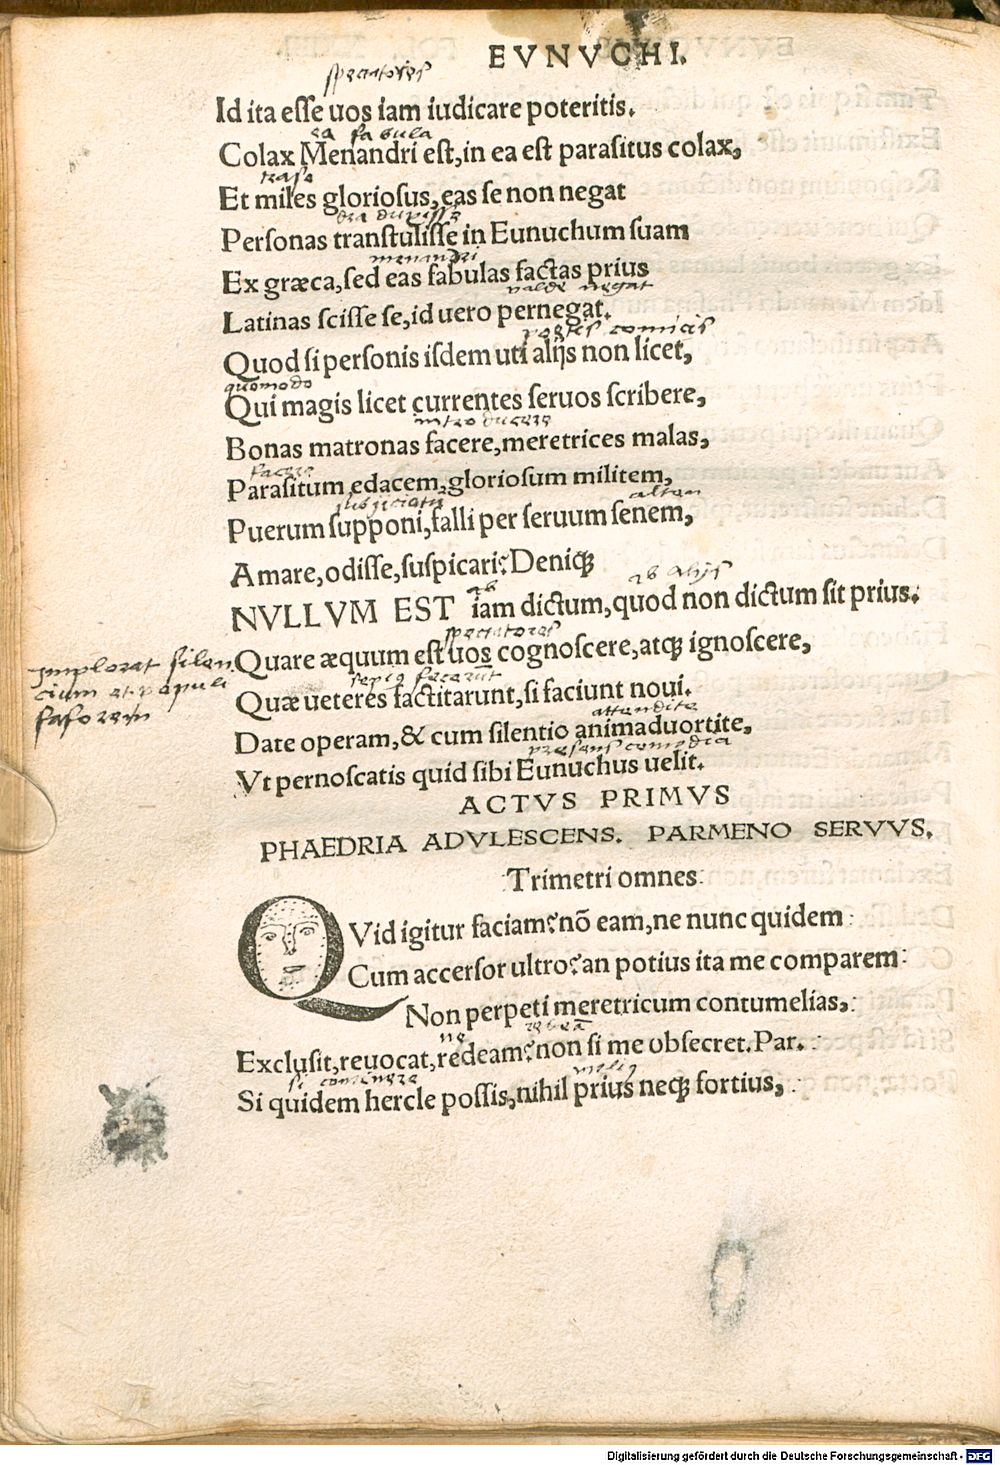 EVNVCHI.
spectatores
Id ita eſſe uos iam iudicare poteritis.
ea fabula
Colax Menandri eſt, in ea eſt paraſitus colax,
traso
Et miles glorioſus, eas ſe non negat
Perſonas tranſtuliſſe in Eunuchum ſuam
menandri
Ex græca, ſed eas fabulas factas prius
valde negat
Latinas ſciſſe ſe, id uero pernegat.
Quod ſi perſonis iſdem uti alijs non licet,
quomodo
Qui magis licet currentes ſeruos ſcribere,
introducere
Bonas matronas facere, meretrices malas,
facere
Paraſitum edacem, glorioſum militem,
Puerum ſupponi, falli per ſeruum ſenem,
Amare, odiſſe, ſuspicari? Deniqꝫ
ab alijs
NVLLVM EST iam dictum, quod non dictum ſit prius.
spectatores
Quare æquum eſt uos cognoſcere, atqꝫ ignoſcere,
Implorat silen
cium et populi
faforem
Quæ ueteres factitarunt, ſi faciunt noui.
attendite
Date operam, & cum ſilentio animaduortite,
praesens comedia
Vt pernoſcatis quid ſibi Eunuchus uelit.
ACTVS PRIMVS
PHAEDRIA ADVLESCENS. PARMENO SERVVS.
Trimetri omnes
QVid igitur faciam? nō eam, ne nunc quidem
Cum accerſor ultro? an potius ita me comparem
Non perpeti meretricum contumelias,
Excluſit, reuocat, redeam? non ſi me obſecret. Par.
Si quidem hercle poſſis, nihil prius neqꝫ fortius,
Digitalisierung gefördert durch die Deutsche Forschungsgemeinschaft - DFG